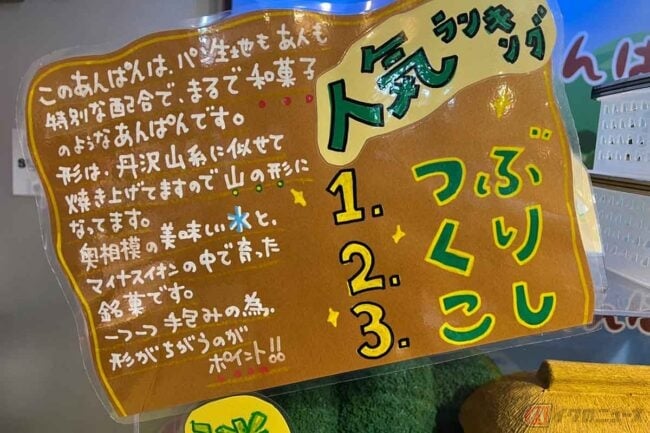 このあんぱんは、パン生地もあんも
特別な配合で、まるで和菓子
のようなあんぱんです。
形は、丹沢山系に似せて
焼き上げてますので山の形に
なってます。
奥相模の美味しい水と、
マイナスイオンの中で育った
銘菓です。
一つ一つ手包みの為、
形がちがうのが
ポイント!!
人気ランキング
1. つぶ
2. くり
3. こし
んぱ
バイクのニュース